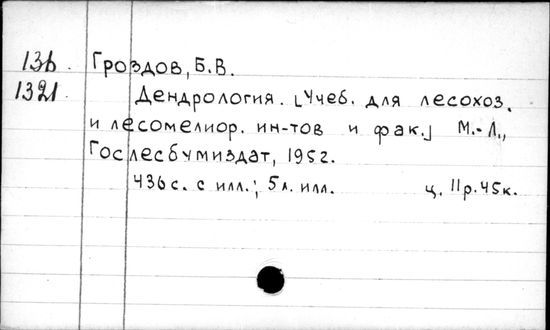 13б Гроздов, Б.В.
1321 Дендрология. [Учеб. для лесохоз.
и лесомелиор. ин-тов и фак.] М.-Л.,
Гослесбумиздат, 1952.
436 с. с илл.; 5 л. илл. ц. 11р.45к.